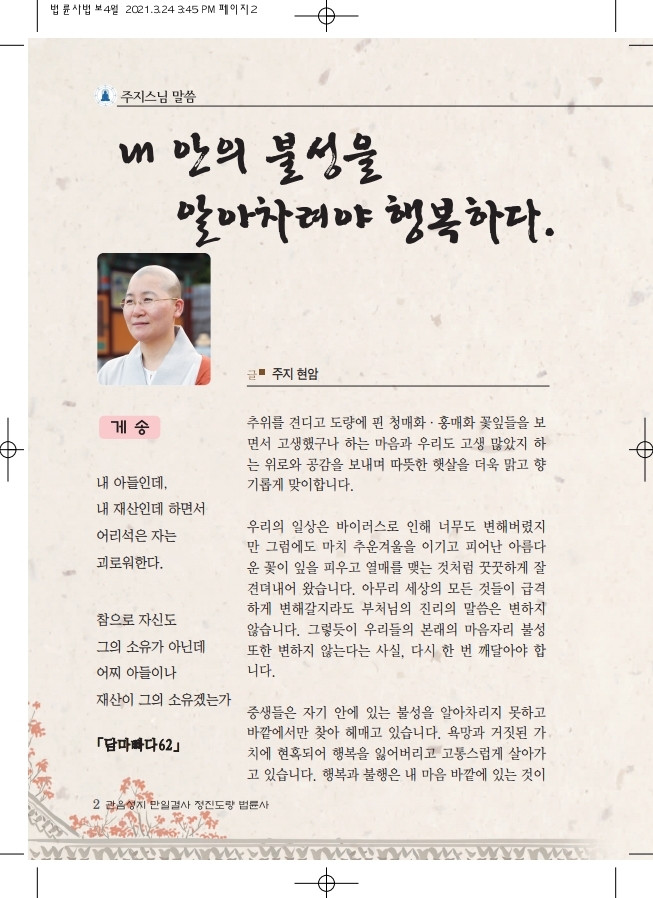 법륜사법보4월 2021.3.24 3:45 PM 페이지 2
주지스님 말씀
내 안의 불성을
알아차려야 행복하다.
글■ 주지 현암
게 송
내 아들인데,
내 재산인데 하면서
어리석은 자는
괴로워한다.
참으로 자신도
그의 소유가 아닌데
어찌 아들이나
재산이 그의 소유겠는가
「담마빠다62」
추위를 견디고 도량에 핀 청매화·홍매화 꽃잎들을 보
면서 고생했구나 하는 마음과 우리도 고생 많았지 하
는 위로와 공감을 보내며 따뜻한 햇살을 더욱 맑고 향
기롭게 맞이합니다.
우리의 일상은 바이러스로 인해 너무도 변해버렸지
만 그럼에도 마치 추운겨울을 이기고 피어난 아름다
운 꽃이 잎을 피우고 열매를 맺는 것처럼 꿋꿋하게 잘
견뎌내어 왔습니다. 아무리 세상의 모든 것들이 급격
하게 변해갈지라도 부처님의 진리의 말씀은 변하지
않습니다. 그렇듯이 우리들의 본래의 마음자리 불성
또한 변하지 않는다는 사실, 다시 한 번 깨달아야 합
니다.
중생들은 자기 안에 있는 불성을 알아차리지 못하고
바깥에서만 찾아 헤매고 있습니다. 욕망과 거짓된 가
치에 현혹되어 행복을 잃어버리고 고통스럽게 살아가
고 있습니다. 행복과 불행은 내 마음 바깥에 있는 것이
2 관음성지 만일결사 정진도량 법륜사